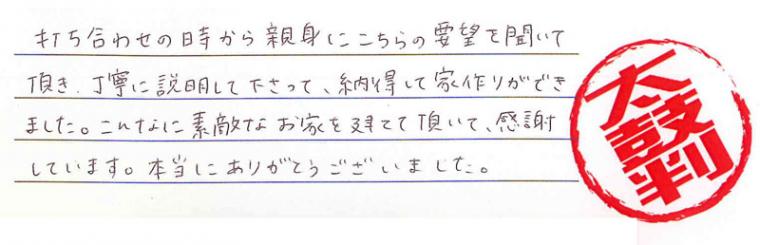 打ち合わせの時から親身にこちらの要望を聞いて
頂き、丁寧に説明して下さって、納得して家作りができ
ました。こんなに素敵なお家を建てて頂いて、感謝
しています。本当にありがとうございました。
太鼓判